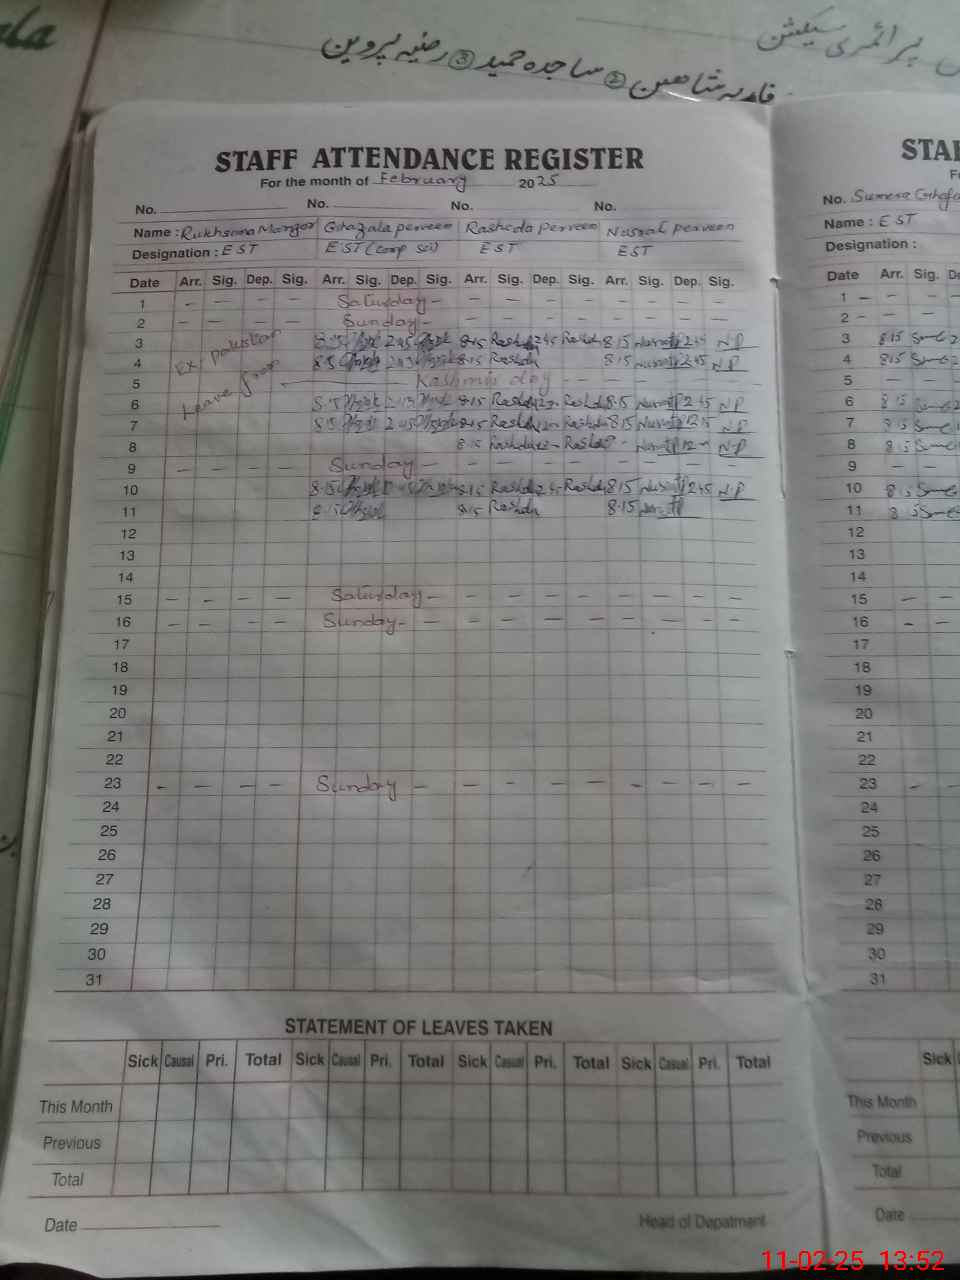 ala
پرائمری سیکشن
شاھین ② ساجدہ حمید ③ رضیہ پروین
STAFF ATTENDANCE REGISTER
For the month of February 2025
No. No. No. No.
Name : Rukhsana Manzor Ghazala perveen Rasheda perveen Nusrat perveen
Designation : EST EST (Comp Sci) EST EST
Date Arr. Sig. Dep. Sig. Arr. Sig. Dep. Sig. Arr. Sig. Dep. Sig. Arr. Sig. Dep. Sig.
1 - - - - Saturday - - - - - - - - -
2 - - - - Sunday - - - - - - - - -
3 8:15 2:45 8:15 Rashda 2:45 Rashda 8:15 Nusrat 2:45 N.P
4 Ex Pakistan 8:15 8:15 Rashda 8:15 Nusrat 2:45 N.P
5 Leave from Kashmir day - - - - -
6 8:15 8:15 Rashda Rashda 8:15 Nusrat 2:45 N.P
7 8:15 2:45 8:15 Rashda Rashda 8:15 Nusrat 12:15 N.P
8 8:15 Rashda 12 - Rashda Nusrat 12 - N.P
9 - - - - Sunday - - - - - - - - -
10 8:15 2:45 8:15 Rashda 2:45 Rashda 8:15 Nusrat 2:45 N.P
11 8:15 8:15 Rashda 8:15 Nusrat
12
13
14
15 - - - - Saturday - - - - - - - - -
16 - - - - Sunday - - - - - - - - - -
17
18
19
20
21
22
23 - - - - Sunday - - - - - - - - -
24
25
26
27
28
29
30
31
STATEMENT OF LEAVES TAKEN
Sick Causal Pri. Total Sick Causal Pri. Total Sick Casual Pri. Total Sick Casual Pri. Total
This Month
Previous
Total
Date Head of Depatment
STA
No. Sumera
Name : EST
Designation :
Date Arr. Sig. D
1 -
2 - - -
3 8:15
4 8:15
5 - - -
6 8:15
7 8:15
8 8:15
9 - - -
10 8:15
11 8:15
12
13
14
15 - -
16 - -
17
18
19
20
21
22
23 - -
24
25
26
27
28
29
30
31
Sick
This Month
Previous
Total
Date
11-02-25 13:52